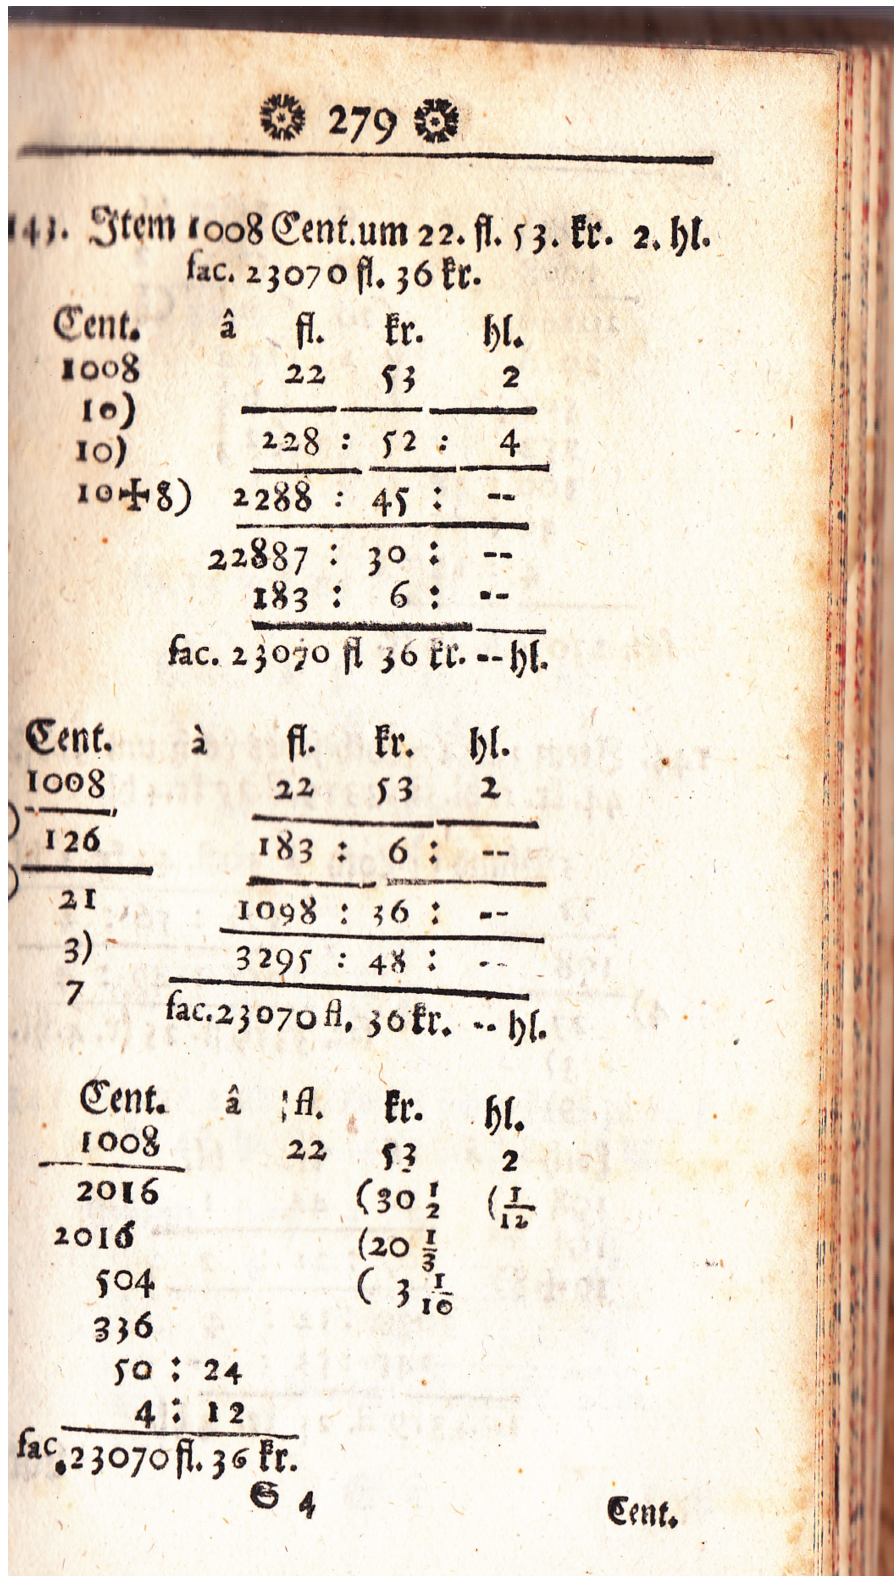 279
143. Item 1008 Cent. um 22. fl. 53. kr. 2. hl.
fac. 23070 fl. 36 kr.
Cent. â fl. kr. hl.
1008 22 53 2
10)
10) 228 : 52 : 4
10+8) 2288 : 45 : --
22887 : 30 : --
183 : 6 : --
fac. 23070 fl 36 kr. -- hl.
Cent. à fl. kr. hl.
1008 22 53 2
)
126 183 : 6 : --
)
21 1098 : 36 : --
3) 3295 : 48 : --
7
fac. 23070 fl. 36 kr. -- hl.
Cent. â fl. kr. hl.
1008 22 53 2
2016 (30 1/2 (1/12
2016 (20 1/3
504 ( 3 1/10
336
50 : 24
4 : 12
fac. 23070 fl. 36 kr.
S 4 Cent.